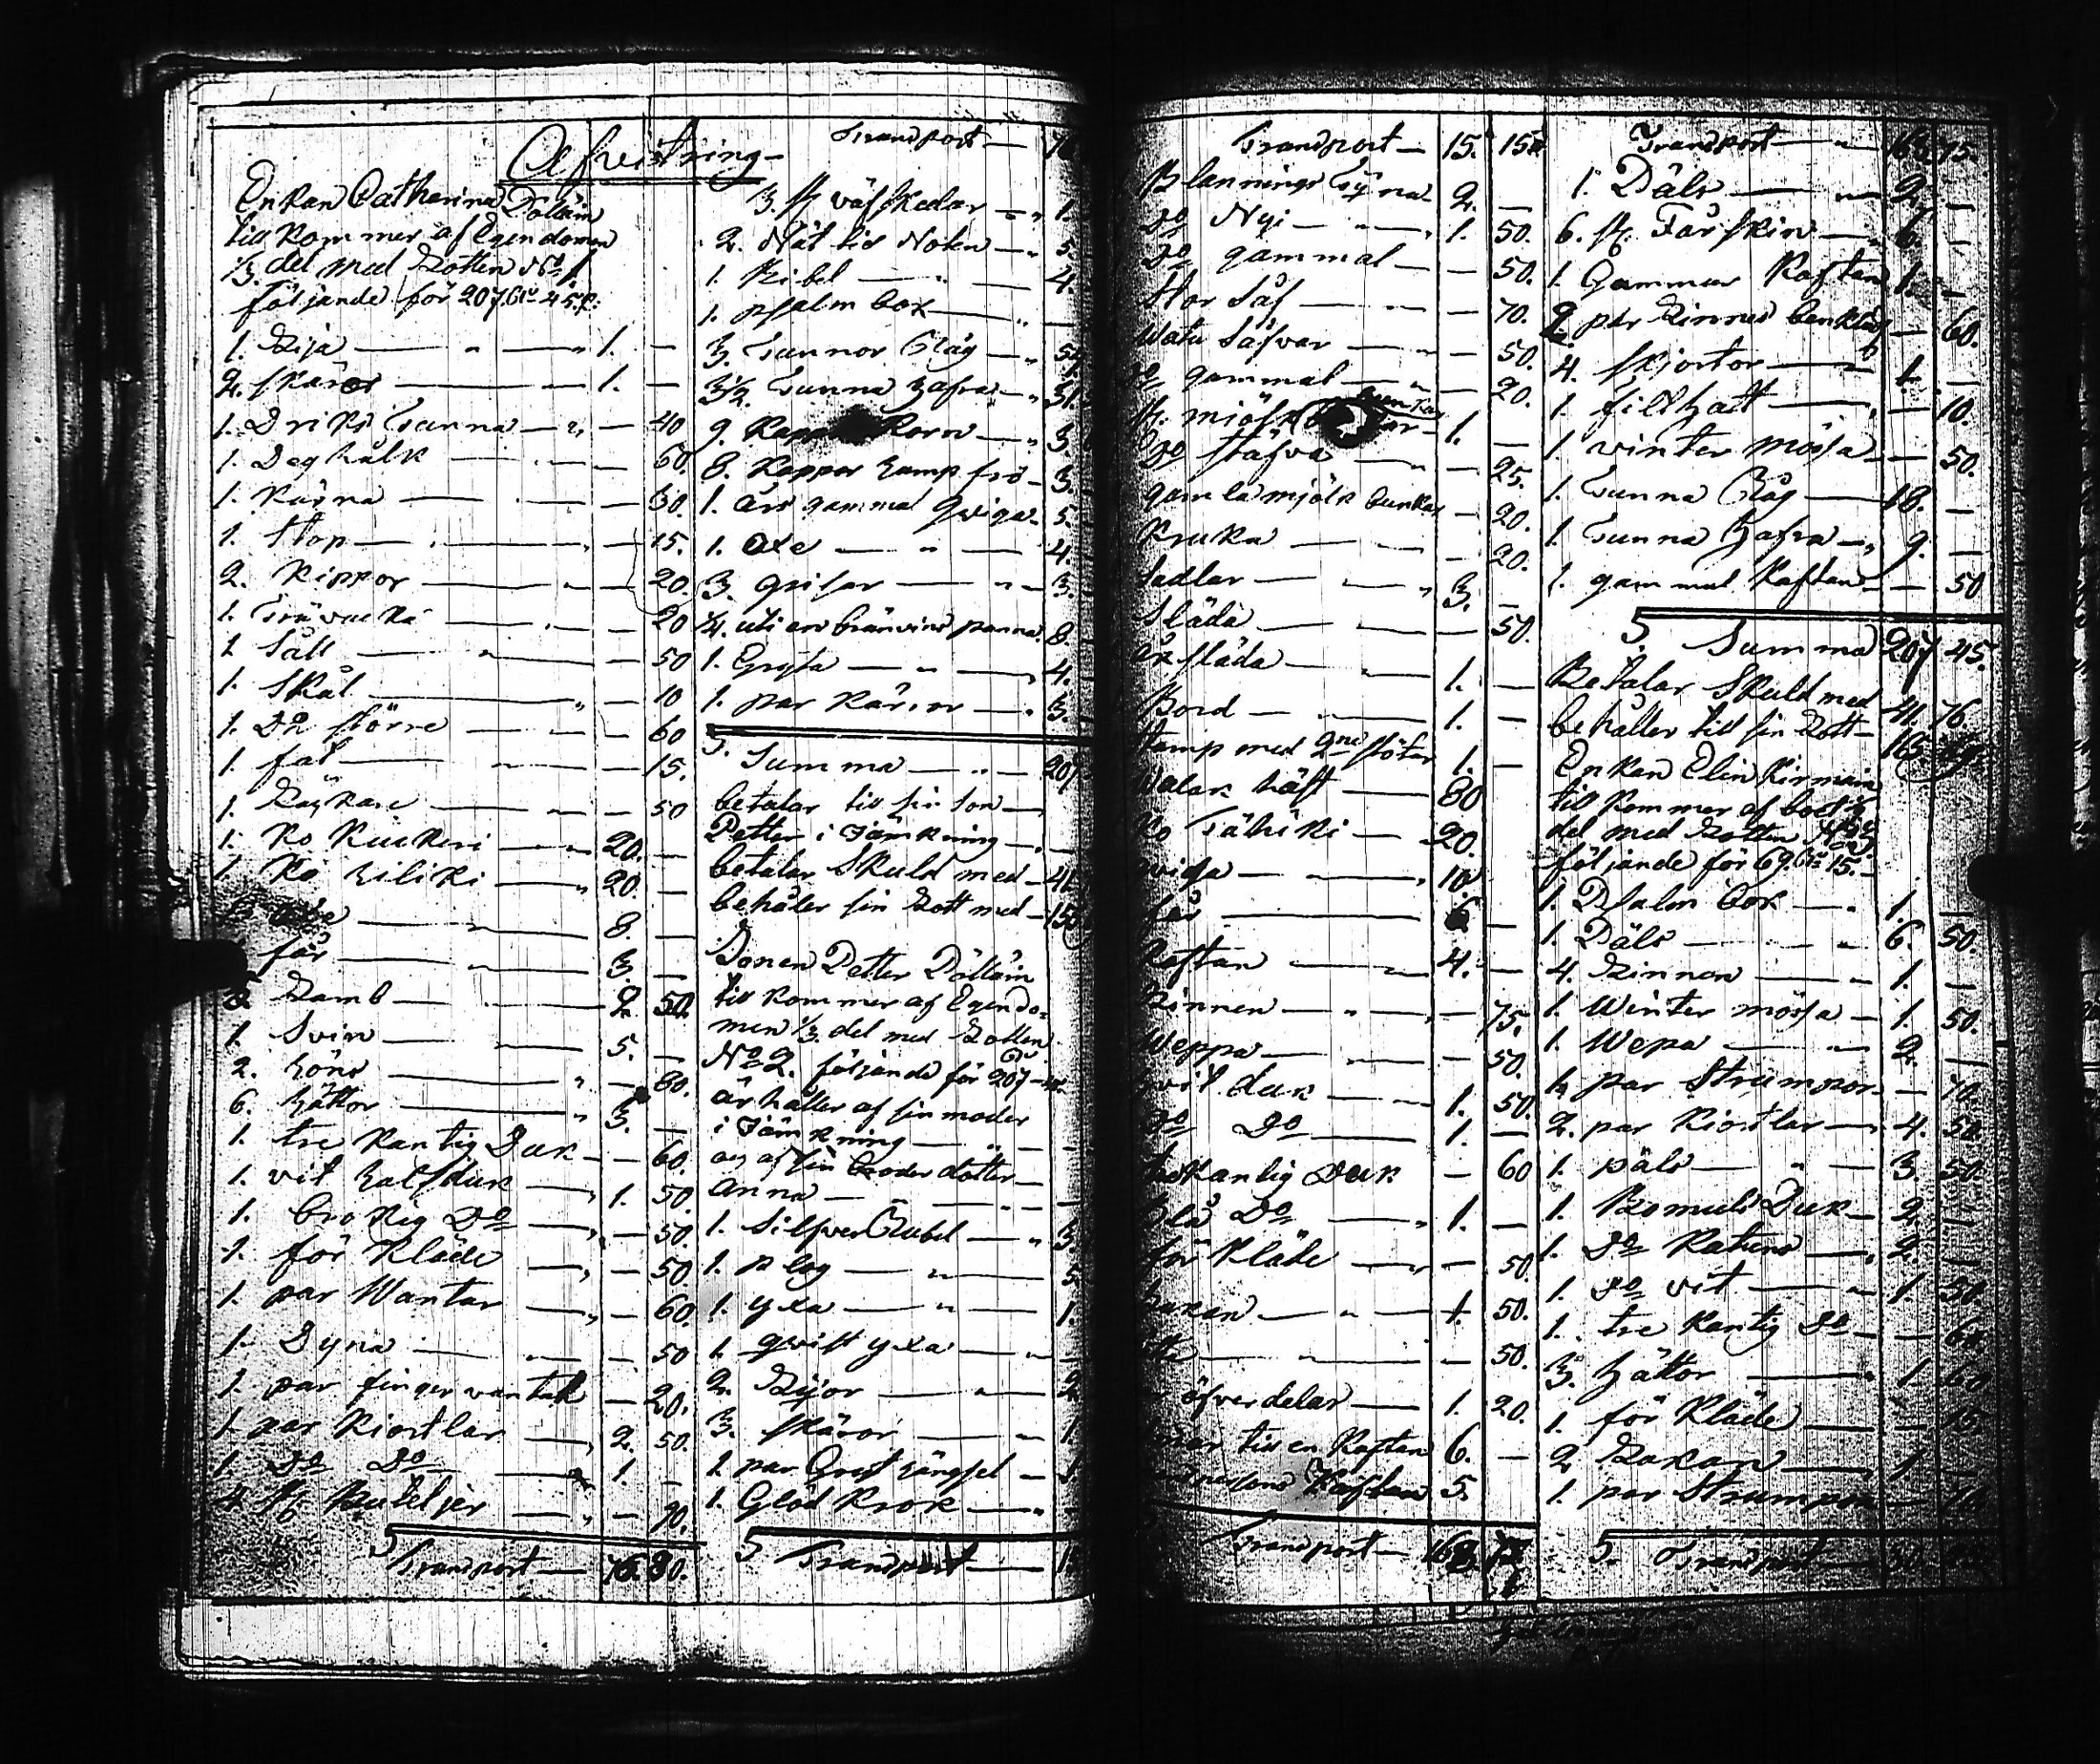 Afvittring
Enkan Catharina Pöllän
till kommer af Egendomen
1/3 del med Lotten No 1.
följande för 207. 45.
1. Lija 1. —
2. skäror 1. —
1. Driks Tunna — 40
1. Deg hålk — 60.
1. Kärna — 30.
1. Stop — 15.
2. Kippor — 20.
1. Trä — 20
1. Såll — 50
1. Skål — 10
1. Do större — 60
1. fat — 15.
1. — 50
1. Ko Kuckeri 20. —
1. Ko Liliki 20. —
8. —
får 3. —
Lamb 2. 50.
1. Svin 5. —
2. höns — 80.
6. hättor 3. —
1. tre kantig Duk — 60.
1. vit halsduk 1. 50.
1. brokig Do — 50.
1. för kläde — 50.
1. par Wantar — 60.
1. Dyna — 50
1. par finger vantar — 20.
1. par Kiortlar 2. 50.
1. Do Do 1. —
4. st. Buteljer — 90.
5 Transport 76. 80.
Transport 76
3 st väfskedar 1.
2. Nät till Noten 5.
1. Bibel 4.
1. psalm bok —
3. Tunnor Råg 54
3 1/2 Tunna hafra 31.
9. Kappar Korn 3
8. Kappar hampfrö 3.
1. års gammal Qviga 5.
1. Oxe 4.
3. grisar 3.
1/4. uti en bränvins panna 8
1. Gryta 4.
1. par Käror 3.
5. Summa 207
betalar till sin son
Petter i Jämkning
betalar Skuld med 41
behåler sin Lott med
Sonen Petter Pöllän
till kommer af Egendo-
men 1/3 del med Lotten
No 2. följande för 207
är håller af sin moder
i Jämkning
af sin broder dotter
Anna
1. Silfver 3.
1. plog 5.
1. yxa 1.
1. qvist yxa —
2. Lijor 2
3. skäror 1.
1. par
1. Glöd Krok
5 Transport 15
Transport 15. 15
Blannings Tyna 2. —
Do Nyi 1. 50.
Do gammal — 50.
Stor Såf — 70.
Watu Såfvar — 50.
Do gammal — 20.
st. mjölk bunkar 1. —
Do stäfva — 25.
gamla mjölk bunkar — 20.
Kruka — 20.
sadlar 3. —
Släda — 50.
släda 1. —
Bord 1. —
med 2ne stötar 1. —
Walak häst 80
Ko Tähiki 20.
10
får —
Kaftan 4. —
Linnen — 75.
Weppa — 50.
vit duk 1. 50.
Do Do 1. —
kantig Duk — 60
Blå Do 1. —
för Kläde — 50.
Lakan 1. 50.
— 50.
öfverdelar 1. 20.
till en Kaftan 6. —
Kaftan 5.
Transport
Transport 75.
1. Päls 2. —
6. st. Fårskin 6. —
1. Gammal Kaftan 1. —
2. par Linnes benkläd — 60.
4. skjortor 1 —
1 filthatt — 10.
1 vinter mössa — 50.
1. Tunna Råg 18. —
1. Tunna hafra 9. —
1. gammal Kaftan — 50
5. Summa 207 45.
Betalar Skuld med 41. 76
behåller till sin Lott 165
Enkan Elin Kirmain
till kommer af
del med Lotten No 3
följande för 69. 15.
1. Psalm bok 1. —
1. Päls 6. 50.
4. Linnen 1. —
1. Winter mössa 1. 50.
1. Wepa 2. —
4 par Strumpor — 70.
2. par Kiortlar 4. 50.
1. päls 3. 50.
1. Bomuls Duk 2. —
1. Do Katuns 2. —
1. Do vit 1. 50.
1. tre kantig Do — 60.
3. hättor 1 60
1. för Kläde — 15
2 Lakan 1 —
1. par Strumpor
5. Transport